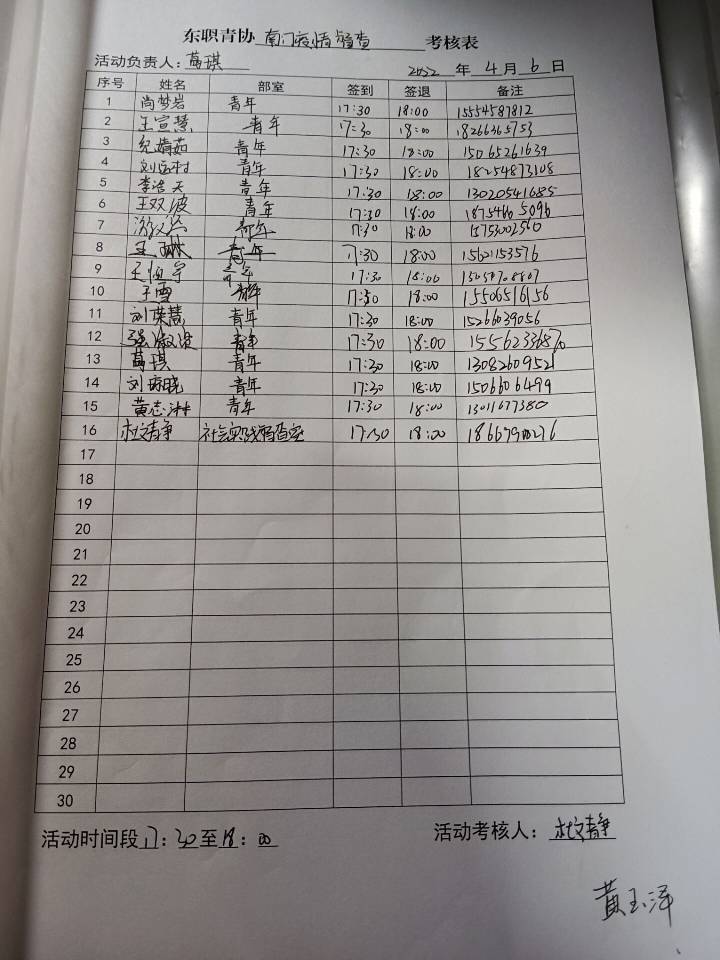 东职青协 南门疫情督查 考核表
活动负责人：葛琪 2022 年 4 月 6 日
序号 姓名 部室 签到 签退 备注
1 尚梦岩 青年 17:30 18:00 15554587812
2 王宣慧 青年 17:30 18:00 18266365753
3 纪婧茹 青年 17:30 18:00 15065261639
4 青年 17:30 18:00 18254873108
5 李浩天 青年 17:30 18:00 13020541685
6 王双波 青年 17:30 18:00 18754605096
7 青年 17:30 18:00 15753002560
8 青年 17:30 18:00 15621153576
9 王恒宇 青年 17:30 18:00
10 于雪 青年 17:30 18:00 15506516156
11 刘瑛慧 青年 17:30 18:00 15266039056
12 青年 17:30 18:00
13 葛琪 青年 17:30 18:00 13082609521
14 青年 17:30 18:00 1506606499
15 黄志淋 青年 17:30 18:00 13011677380
16 杜文静 17:30 18:00
17
18
19
20
21
22
23
24
25
26
27
28
29
30
活动时间段 17：30至18：00 活动考核人：杜文静
黄玉泽